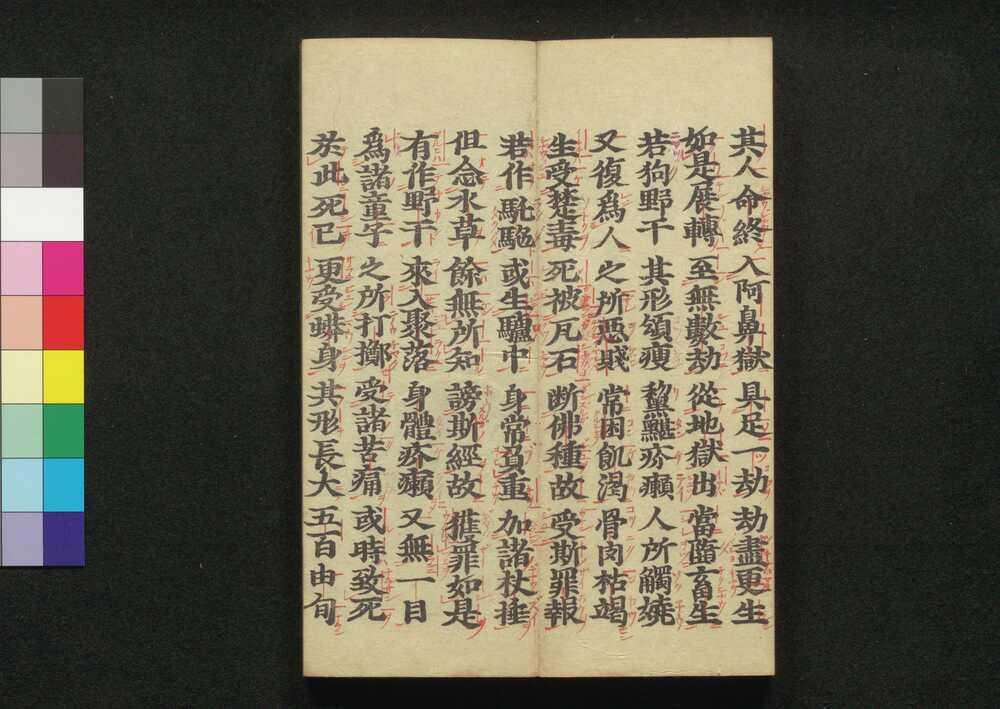 其人命終入阿鼻獄具足一劫劫盡更生
如是展轉至無數劫從地獄出當墮畜生
若狗野干其形頜瘦黧黮疥癩人所觸嬈
又復爲人之所惡賎常困飢渇骨肉枯竭
生受楚毒死被瓦石断佛種故受斯罪報
若作馲駞或生驢中身常負重加諸杖捶
但念水草餘無所知謗斯經故獲罪如是
有作野干來入聚落身體疥癩又無一目
爲諸童子之所打擲受諸苦痛或時致死
於此死已更受蟒身其形長大五百由旬